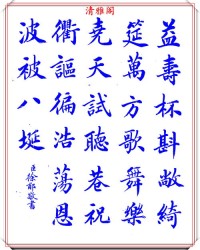 清雅閣
益壽杯斟敞綺
筵萬方歌舞樂
堯天試聽巷祝
衢謳徧浩蕩恩
波被八埏
臣徐郙敬書